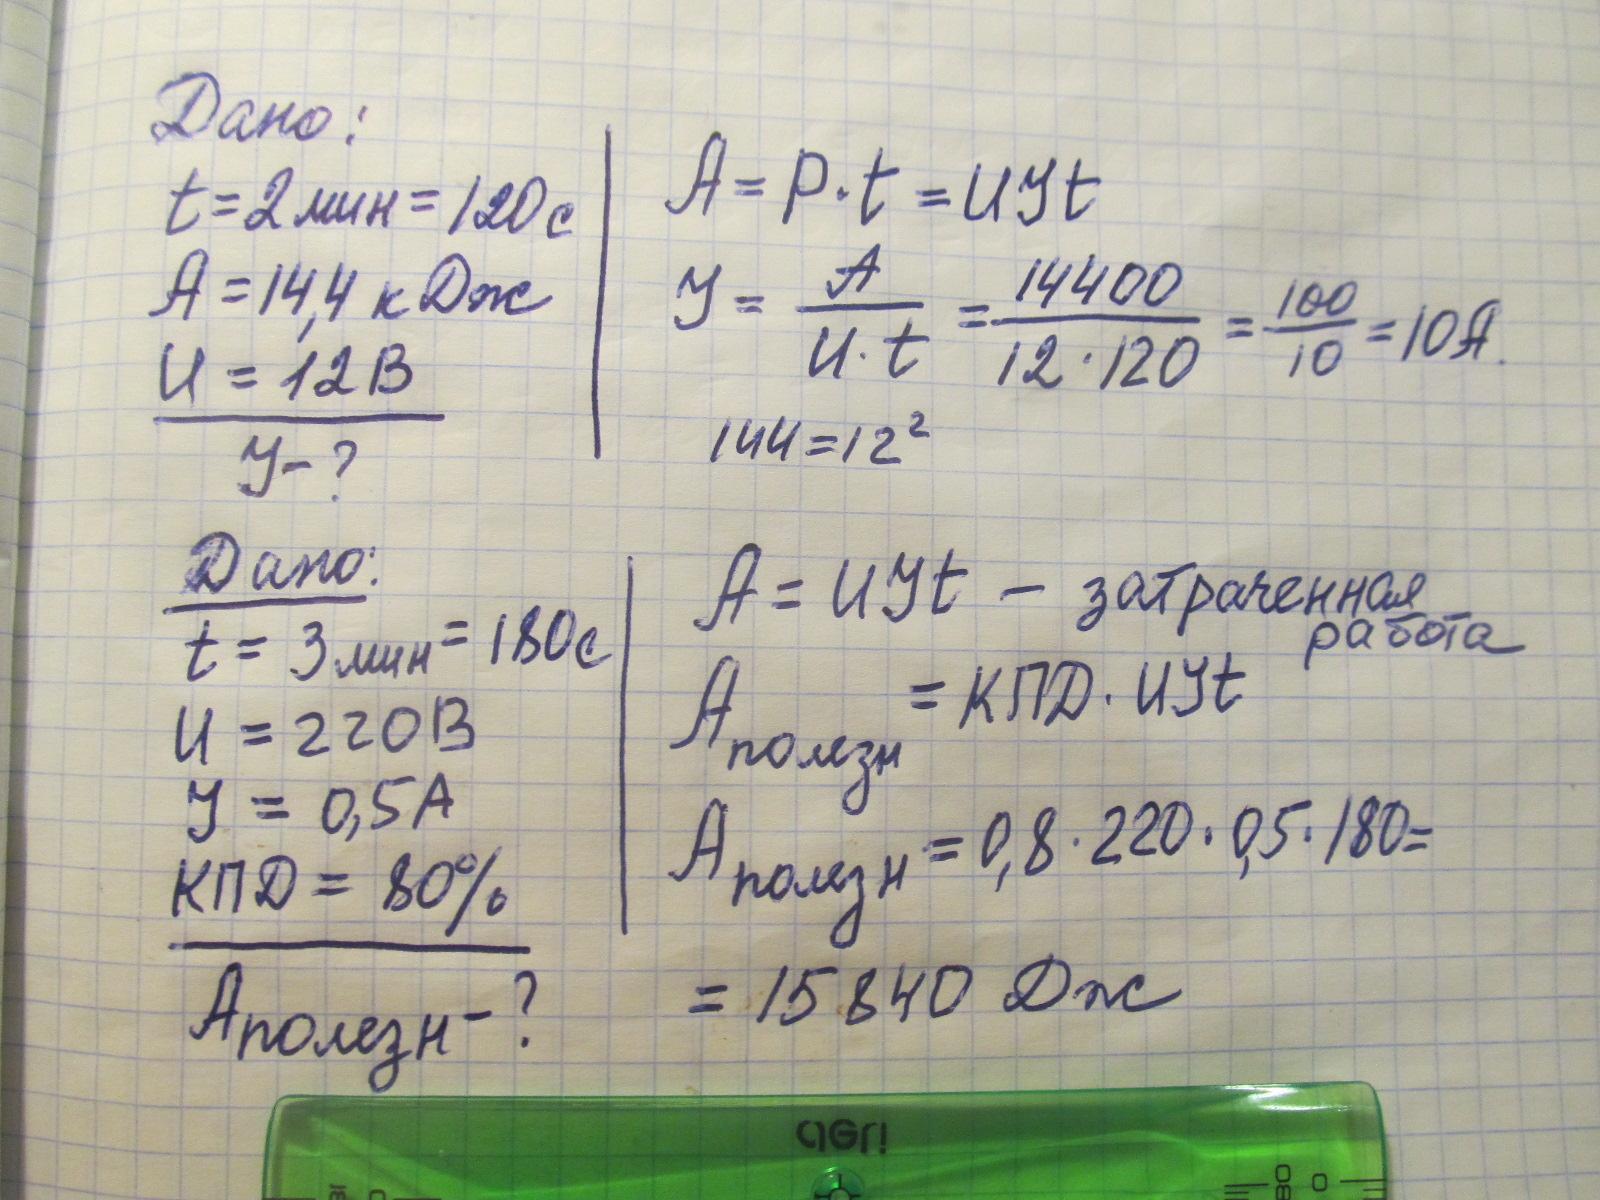 Дано:
t = 2 мин = 120 с
A = 14,4 кДж
U = 12 В
J - ?
A = P · t = UJt
J = A / (U · t) = 14400 / (12 · 120) = 100 / 10 = 10 A.
144 = 12²
Дано:
t = 3 мин = 180 с
U = 220 В
J = 0,5 A
КПД = 80%
A полезн - ?
A = UJt - затраченная
работа
A полезн = КПД · UJt
A полезн = 0,8 · 220 · 0,5 · 180 =
= 15 840 Дж
deli
80 0